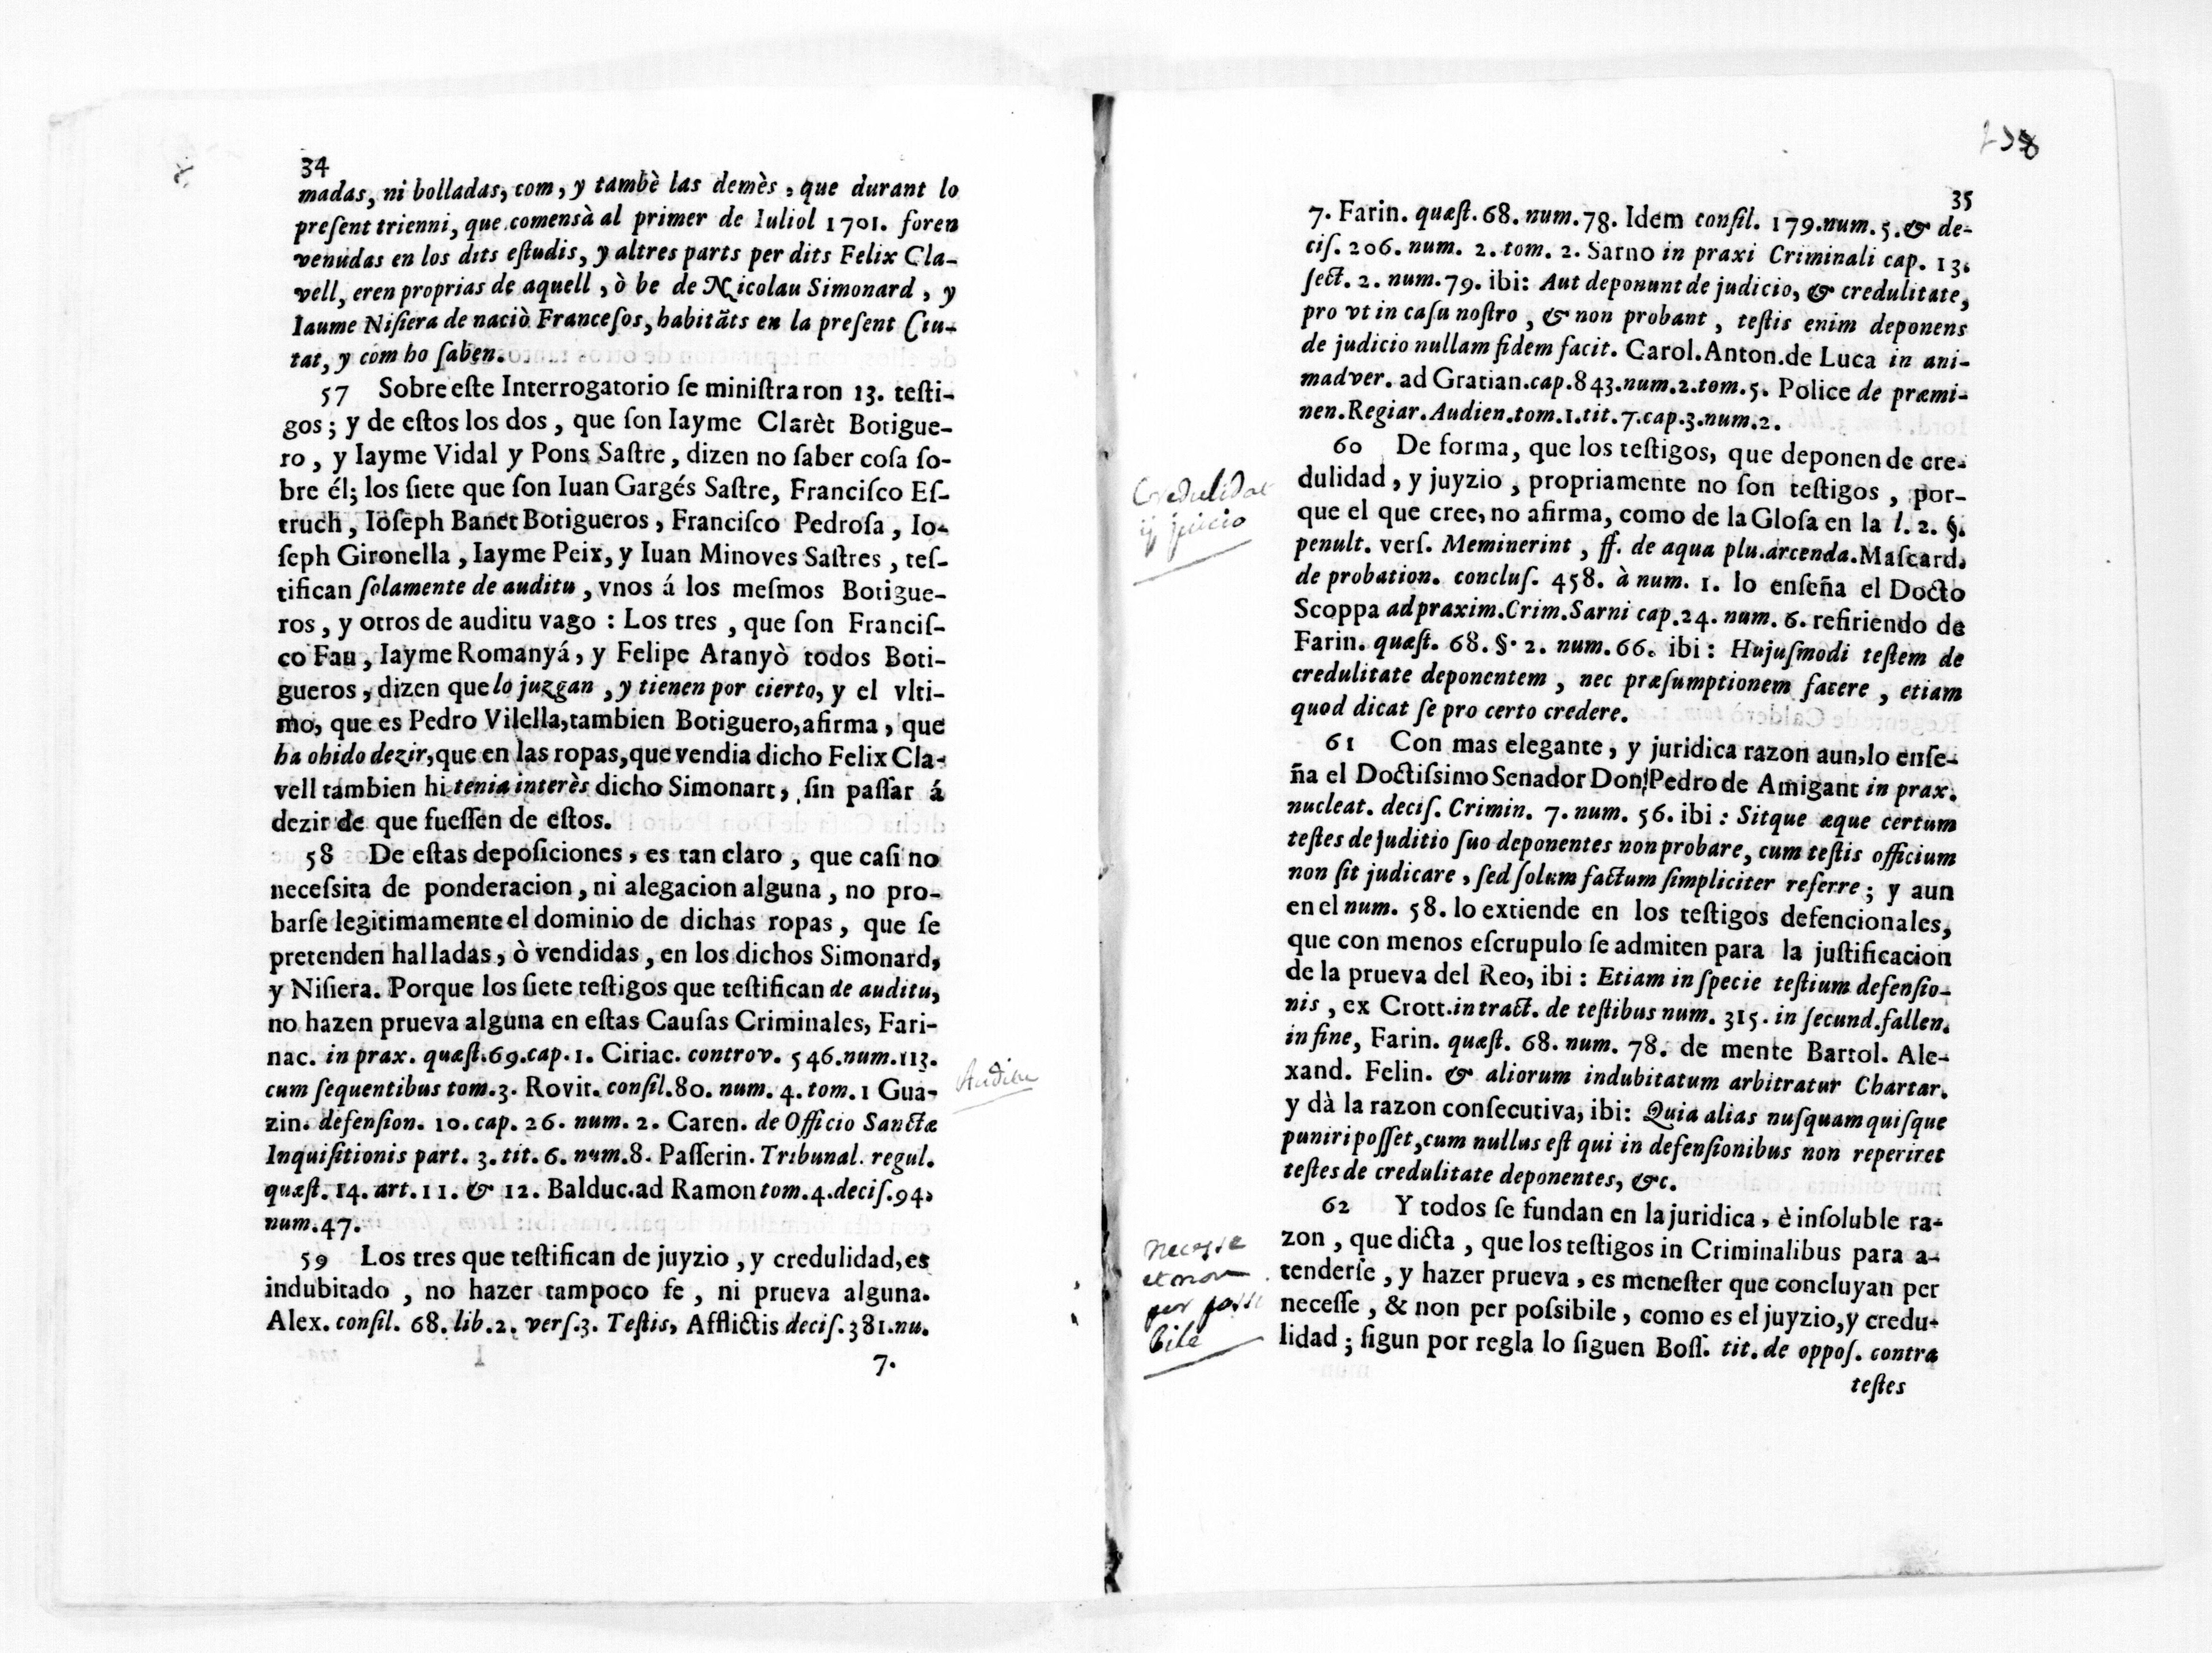 34
madas, ni bolladas, com, y tambè las demès, que durant lo
preſent trienni, que comensà al primer de Iuliol 1701. foren
venudas en los dits eſtudis, y altres parts per dits Felix Cla-
vell, eren proprias de aquell, ò be de Nicolau Simonard, y
Iaume Niſiera de naciò Franceſos, habitãts en la preſent Ciu-
tat, y com ho ſaben.
57 Sobre eſte Interrogatorio ſe miniſtraron 13. teſti-
gos; y de eſtos los dos, que ſon Iayme Clarèt Botigue-
ro, y Iayme Vidal y Pons Saſtre, dizen no ſaber coſa ſo-
bre él; los ſiete que ſon Iuan Gargés Saſtre, Franciſco Eſ-
truch, Ioſeph Banet Botigueros, Franciſco Pedroſa, Io-
ſeph Gironella, Iayme Peix, y Iuan Minoves Saſtres, teſ-
tifican ſolamente de auditu, vnos á los meſmos Botigue-
ros, y otros de auditu vago: Los tres, que ſon Franciſ-
co Fau, Iayme Romanyá, y Felipe Aranyò todos Boti-
gueros, dizen que lo juzgan, y tienen por cierto, y el vlti-
mo, que es Pedro Vilella, tambien Botiguero, afirma, que
ha ohido dezir, que en las ropas, que vendia dicho Felix Cla-
vell tambien hi tenia interès dicho Simonart, ſin paſſar á
dezir de que fueſſen de eſtos.
58 De eſtas depoſiciones, es tan claro, que caſi no
neceſsita de ponderacion, ni alegacion alguna, no pro-
barſe legitimamente el dominio de dichas ropas, que ſe
pretenden halladas, ò vendidas, en los dichos Simonard,
y Niſiera. Porque los ſiete teſtigos que teſtifican de auditu,
no hazen prueva alguna en eſtas Cauſas Criminales, Fari-
nac. in prax. quæſt. 69. cap. 1. Ciriac. controv. 546. num. 113.
cum ſequentibus tom. 3. Rovit. conſil. 80. num. 4. tom. 1 Gua-
zin. defenſion. 10. cap. 26. num. 2. Caren. de Officio Sanctæ
Inquiſitionis part. 3. tit. 6. num. 8. Paſſerin. Tribunal. regul.
quæſt. 14. art. 11. & 12. Balduc. ad Ramon tom. 4. deciſ. 94.
num. 47.
59 Los tres que teſtifican de juyzio, y credulidad, es
indubitado, no hazer tampoco fe, ni prueva alguna.
Alex. conſil. 68. lib. 2. verſ. 3. Teſtis, Afflictis deciſ. 381. nu.
7.
Auditu
238
35
7. Farin. quæſt. 68. num. 78. Idem conſil. 179. num. 5. & de-
ciſ. 206. num. 2. tom. 2. Sarno in praxi Criminali cap. 13.
ſect. 2. num. 79. ibi: Aut deponunt de judicio, & credulitate,
pro vt in caſu noſtro, & non probant, teſtis enim deponens
de judicio nullam fidem facit. Carol. Anton. de Luca in ani-
madver. ad Gratian. cap. 843. num. 2. tom. 5. Police de præmi-
nen. Regiar. Audien. tom. 1. tit. 7. cap. 3. num. 2.
60 De forma, que los teſtigos, que deponen de cre-
dulidad, y juyzio, propriamente no ſon teſtigos, por-
que el que cree, no afirma, como de la Gloſa en la l. 2. §.
penult. verſ. Meminerint, ff. de aqua plu. arcenda. Maſcard.
de probation. concluſ. 458. à num. 1. lo enſeña el Docto
Scoppa ad praxim. Crim. Sarni cap. 24. num. 6. refiriendo de
Farin. quæſt. 68. §. 2. num. 66. ibi: Hujuſmodi teſtem de
credulitate deponentem, nec præſumptionem facere, etiam
quod dicat ſe pro certo credere.
61 Con mas elegante, y juridica razon aun, lo enſe-
ña el Doctiſsimo Senador Don Pedro de Amigant in prax.
nucleat. deciſ. Crimin. 7. num. 56. ibi: Sitque æque certum
teſtes de juditio ſuo deponentes non probare, cum teſtis officium
non ſit judicare, ſed ſolum factum ſimpliciter referre; y aun
en el num. 58. lo extiende en los teſtigos defencionales,
que con menos eſcrupulo ſe admiten para la juſtificacion
de la prueva del Reo, ibi: Etiam in ſpecie teſtium defenſio-
nis, ex Crott. in tract. de teſtibus num. 315. in ſecund. fallen.
in fine, Farin. quæſt. 68. num. 78. de mente Bartol. Ale-
xand. Felin. & aliorum indubitatum arbitratur Chartar.
y dà la razon conſecutiva, ibi: Quia alias nuſquam quiſque
puniri poſſet, cum nullus eſt qui in defenſionibus non reperiret
teſtes de credulitate deponentes, &c.
62 Y todos ſe fundan en la juridica, è inſoluble ra-
zon, que dicta, que los teſtigos in Criminalibus para a-
tenderſe, y hazer prueva, es meneſter que concluyan per
neceſſe, & non per poſsibile, como es el juyzio, y credu-
lidad; ſigun por regla lo ſiguen Boſſ. tit. de oppoſ. contra
teſtes
Credulidat
y juicio
necesse
et non
per possi
bile